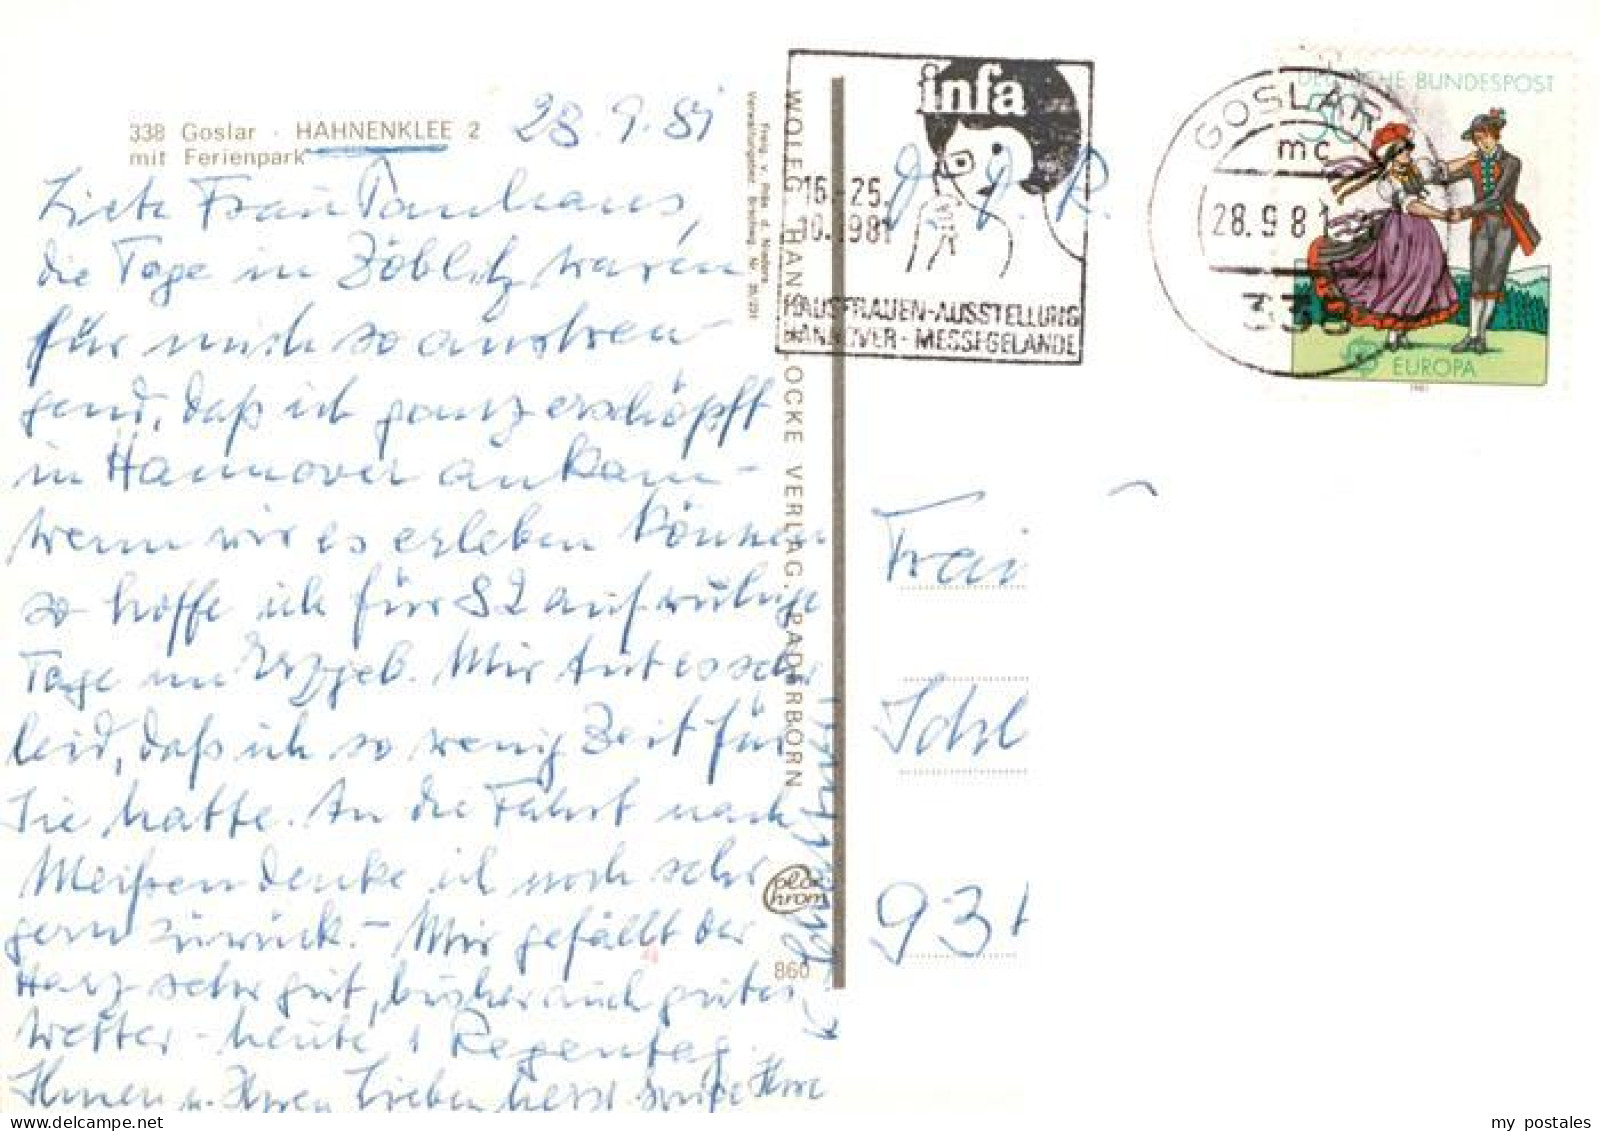 338 Goslar · HAHNENKLEE 2
mit Ferienpark
28.9.81
Liebe Frau Tauhaus,
die Tage in Zöblitz waren
für mich so anstren-
gend, daß ich ganz erschöpft
in Hannover ankam -
wenn wir es erleben können
so hoffe ich für 82 auf ruhige
Tage im Erzgeb. Mir tut es sehr
leid, daß ich so wenig Zeit für
Sie hatte. An die Fahrt nach
Meißen denke ich noch sehr
gern zurück. - Mir gefällt der
Harz sehr gut, bisher auch gutes
Wetter - heute 1 Regentag.
Ihnen u. Ihren Lieben herzl. Grüße Ihre
WOLFG. HANS KLOCKE VERLAG, PADERBORN
Freig. v. Präs. d. Nieders.
Verwaltungsbez. Brschwg. Nr.
860
infa
16.-25.
10.1981
HAUSFRAUEN-AUSSTELLUNG
HANNOVER - MESSEGELÄNDE
D. D. R.
GOSLAR
mc
28.9.81
338
DEUTSCHE BUNDESPOST
50
EUROPA
1981
Frau
Schl
93
my postales